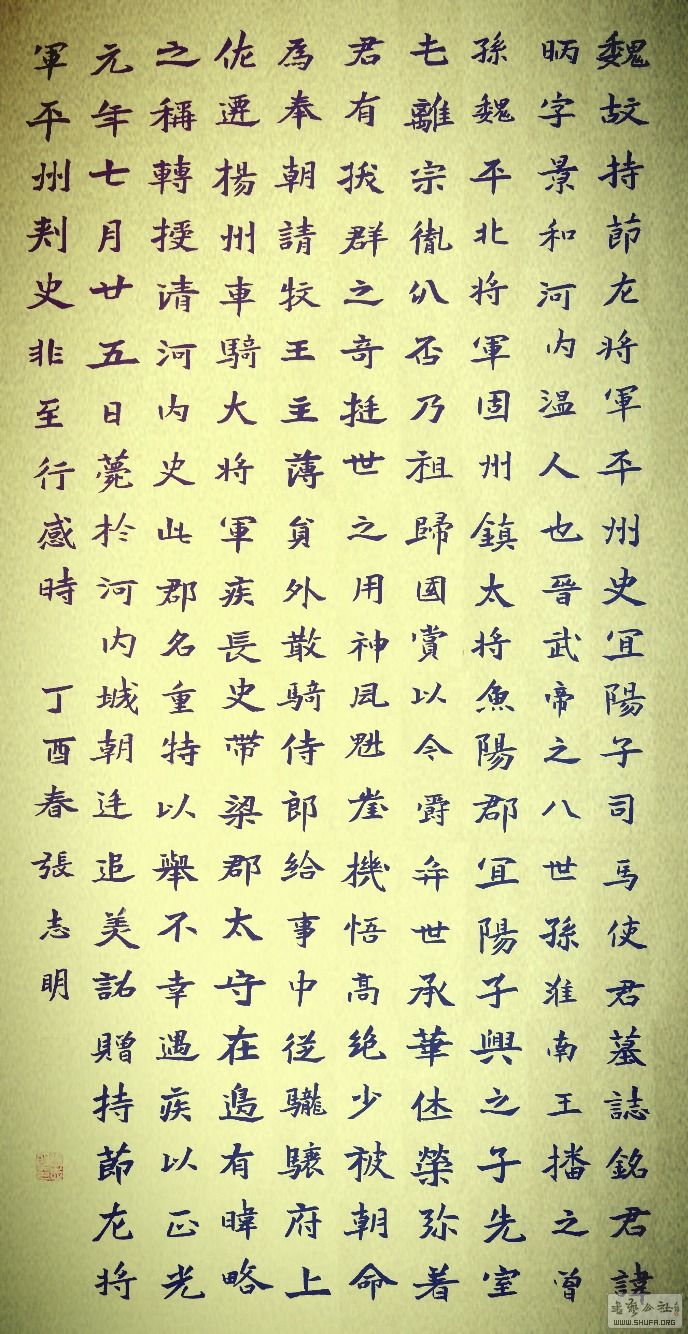 魏故持節左將軍平州史宜陽子司馬使君墓誌銘君諱
昞字景和河内温人也晉武帝之八世孫淮南王播之曾
孫魏平北將軍固州鎮太將魚陽郡宜陽子興之子先室
七離宗胤分否乃祖歸國賞以今爵弈世承華休榮弥著
君有拔群之奇挺世之用神風魁崖機悟高絶少被朝命
為奉朝請牧王主薄負外散騎侍郎給事中従驪驤府上
佐遷揚州車騎大将軍疾長史帯梁郡太守在邊有暐略
之稱轉授清河内史此郡名重特以舉不幸遇疾以正光
元年七月廿五日薨於河内城朝廷追美詔贈持節左将
軍平州刾史非至行感時 丁酉春張志明
書藝公社
WWW.SHUFA.ORG